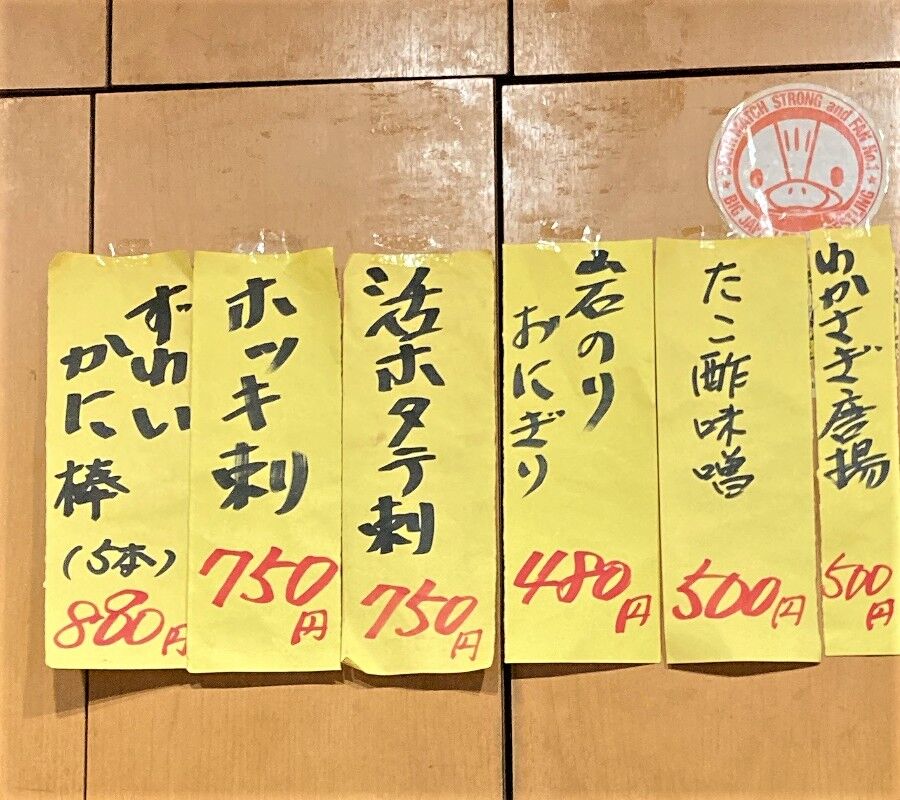 MATCH STRONG and FAN No.1
BIG
わかさぎ唐揚
500円
たこ酢味噌
500円
岩のり
おにぎり
480円
活ホタテ刺
750円
ホッキ刺
750円
ずわい
かに棒
(5本)
880円